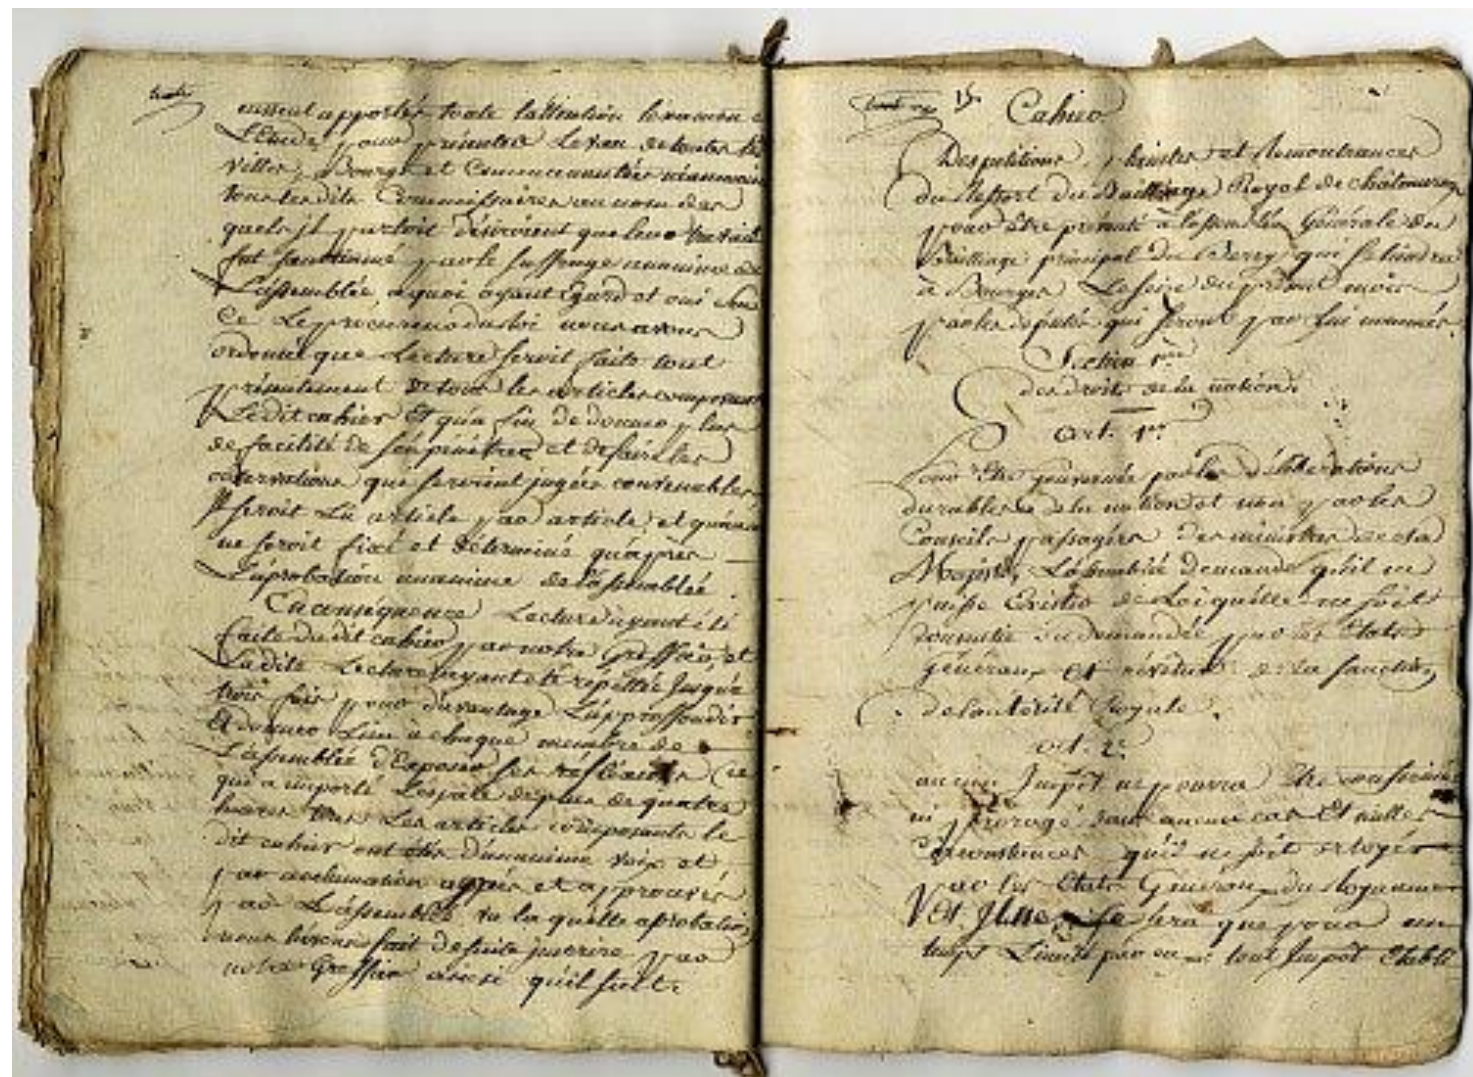 eussent apportés toute l'attention l'examen
L'Etude pour présenter le vœu de toutes les
villes, Bourgs et Communautés néanmoins
tous lesdits Commissaires au nom des
quels il parloit désiroient que leur travail
fut sanctionné par le suffrage unanime de
L'assemblée, aquoi ayant Egard et oui sur
Ce Le procureur du Roi nous avons
ordonné que Lecture seroit faite tout
présentement de tous les articles composant
Ledit cahier Et qu'a fin de donner plus
de facilité de s'en pénétrer et de faire les
observations que seroient jugées convenables
Il seroit Lu article par article, et qu'aucun
ne seroit fixé et déterminé qu'après
L'aprobation unanime de l'assemblée.
En conséquence Lecture ayant été
faite du dit cahier par notre Greffier, et
Ladite Lecture ayant été répettée Jusqu'a
trois fois pour davantage L'approffondir
Et donner Lieu à chaque membre de
L'assemblée d'Exposer ses réfléxions ce
qui a emporté L'espace de plus de quatre
heures tous Les articles composants le
dit cahier ont étés d'unanime voix et
par acclamation agréés et approuvés
par L'assemblée, vu la quelle aprobation
nous l'avons fait de suite inscrire par
notre Greffier ainsi qu'il suit.
15.
Cahier
Des petitions, plaintes et Remontrances
du Ressort du Bailliage Royal de châteauroux
pour être présenté à l'assemblée Générale du
Bailliage principal du Berry qui se tiendra
à Bourges Le seize du présent mois
par les députés qui seront par lui nommés.
Section 1re
des droits de la nation.
art. 1er
Pour Etre gouvernée par les délibérations
durables de la nation et non par les
Conseils passagers des ministres de sa
Majesté, L'assemblée demande qu'il ne
puisse Exister de Loi qu'elle ne soit
consentie ou demandée par les Etats
généraux et revêtue de la sanction
de l'autorité Royale.
art. 2e
aucun Impôt ne pourra Etre
ni prorogé dans aucun cas Et nulles
Circonstances qu'il ne soit octroyé
par les Etats Généraux du Royaume
Et Il ne se sera que pour un
temps Limité par eux tout Impôt Etabli